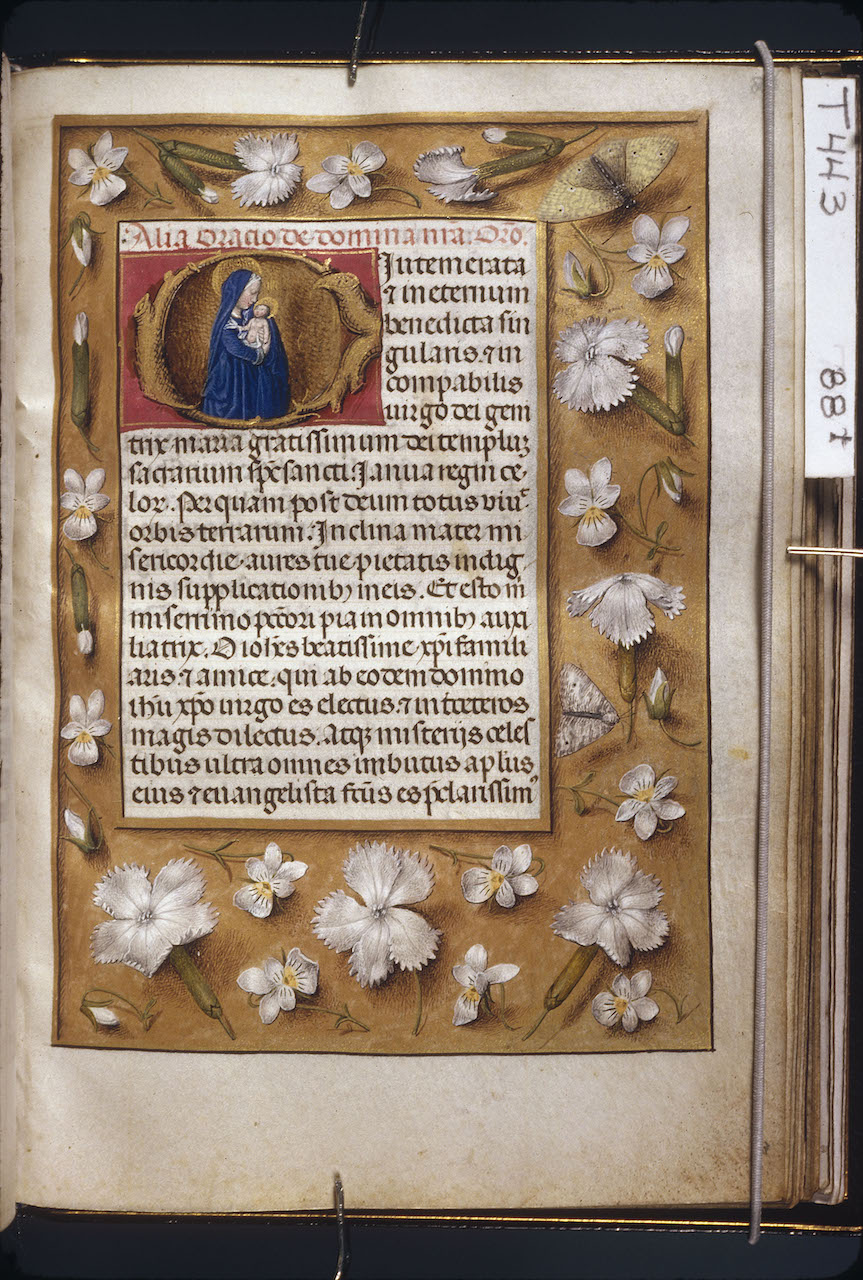 Alia Oracio de domina nr̄a. Orō.
O Intemerata
⁊ in eternum
benedicta sin
gularis. ⁊ in
compabilis
uirgo dei gem
trix maria gratissimum dei templuȝ
sacrarium spēsancti. Ianua regni ce-
lor. Per quam post deum totus viuͥᵗ
orbis terrarum. Inclina mater mi
sericordie. aures tue pietatis indig
nis supplicationibꝫ meis. Et esto m̄
miserrimo pctōri pia in omnibꝫ auxi
liatrix. O iohēs beatissime. xp̄i famili
aris. ⁊ amice. qui ab eodem domino
ihū xp̄o uirgo es electus. ⁊ inter ceteros
magis dilectus. Atqꝫ misterijs celes
tibus ultra omnes imbutus aplus
eius ⁊ euangelista fc̄us es p̄clarissimꝰ
T443
88r